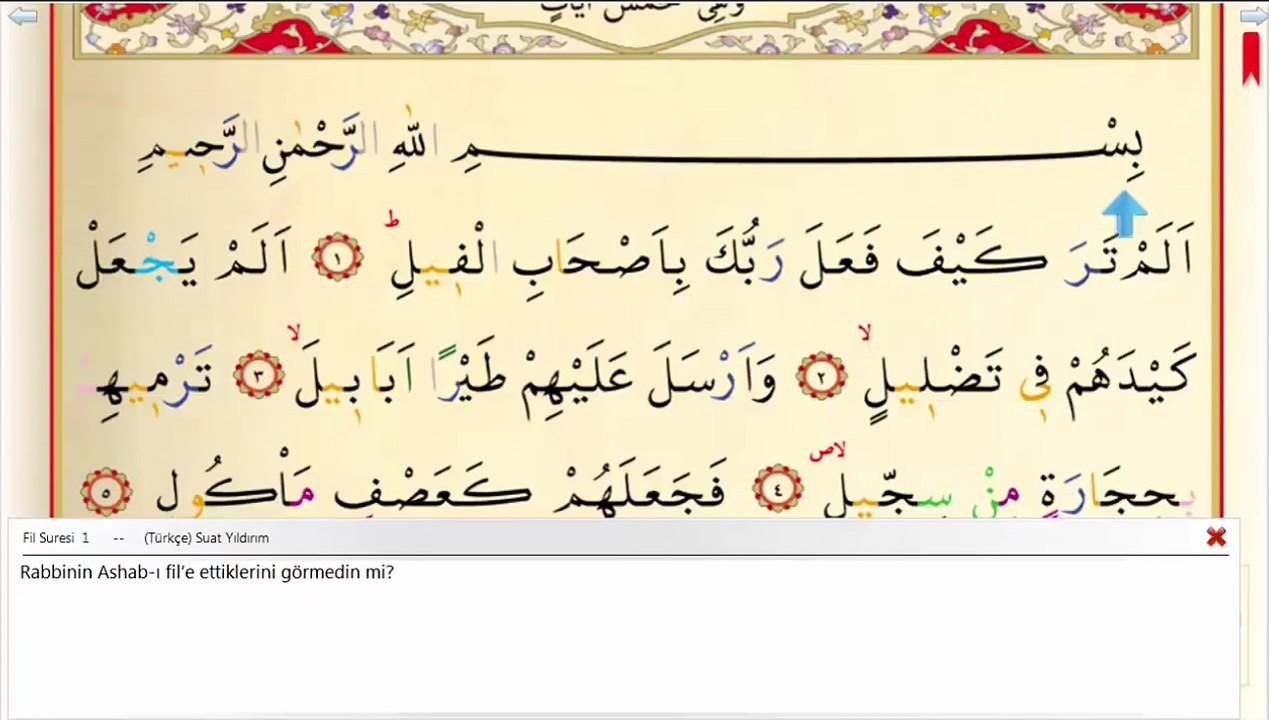 وَهِيَ خَمْسُ اٰيَاتٍ
بِسْمِ اللّٰهِ الرَّحْمٰنِ الرَّحٖيمِ
اَلَمْ تَرَ كَيْفَ فَعَلَ رَبُّكَ بِاَصْحَابِ الْفٖيلِ ط ١ اَلَمْ يَجْعَلْ
كَيْدَهُمْ فٖى تَضْلٖيلٍ لا ٢ وَاَرْسَلَ عَلَيْهِمْ طَيْرًا اَبَابٖيلَ لا ٣ تَرْمٖيهِمْ
بِحِجَارَةٍ مِنْ سِجّٖيلٍ لاص ٤ فَجَعَلَهُمْ كَعَصْفٍ مَاْكُولٍ ٥
Fil Suresi 1 -- (Türkçe) Suat Yıldırım
Rabbinin Ashab-ı fil’e ettiklerini görmedin mi?